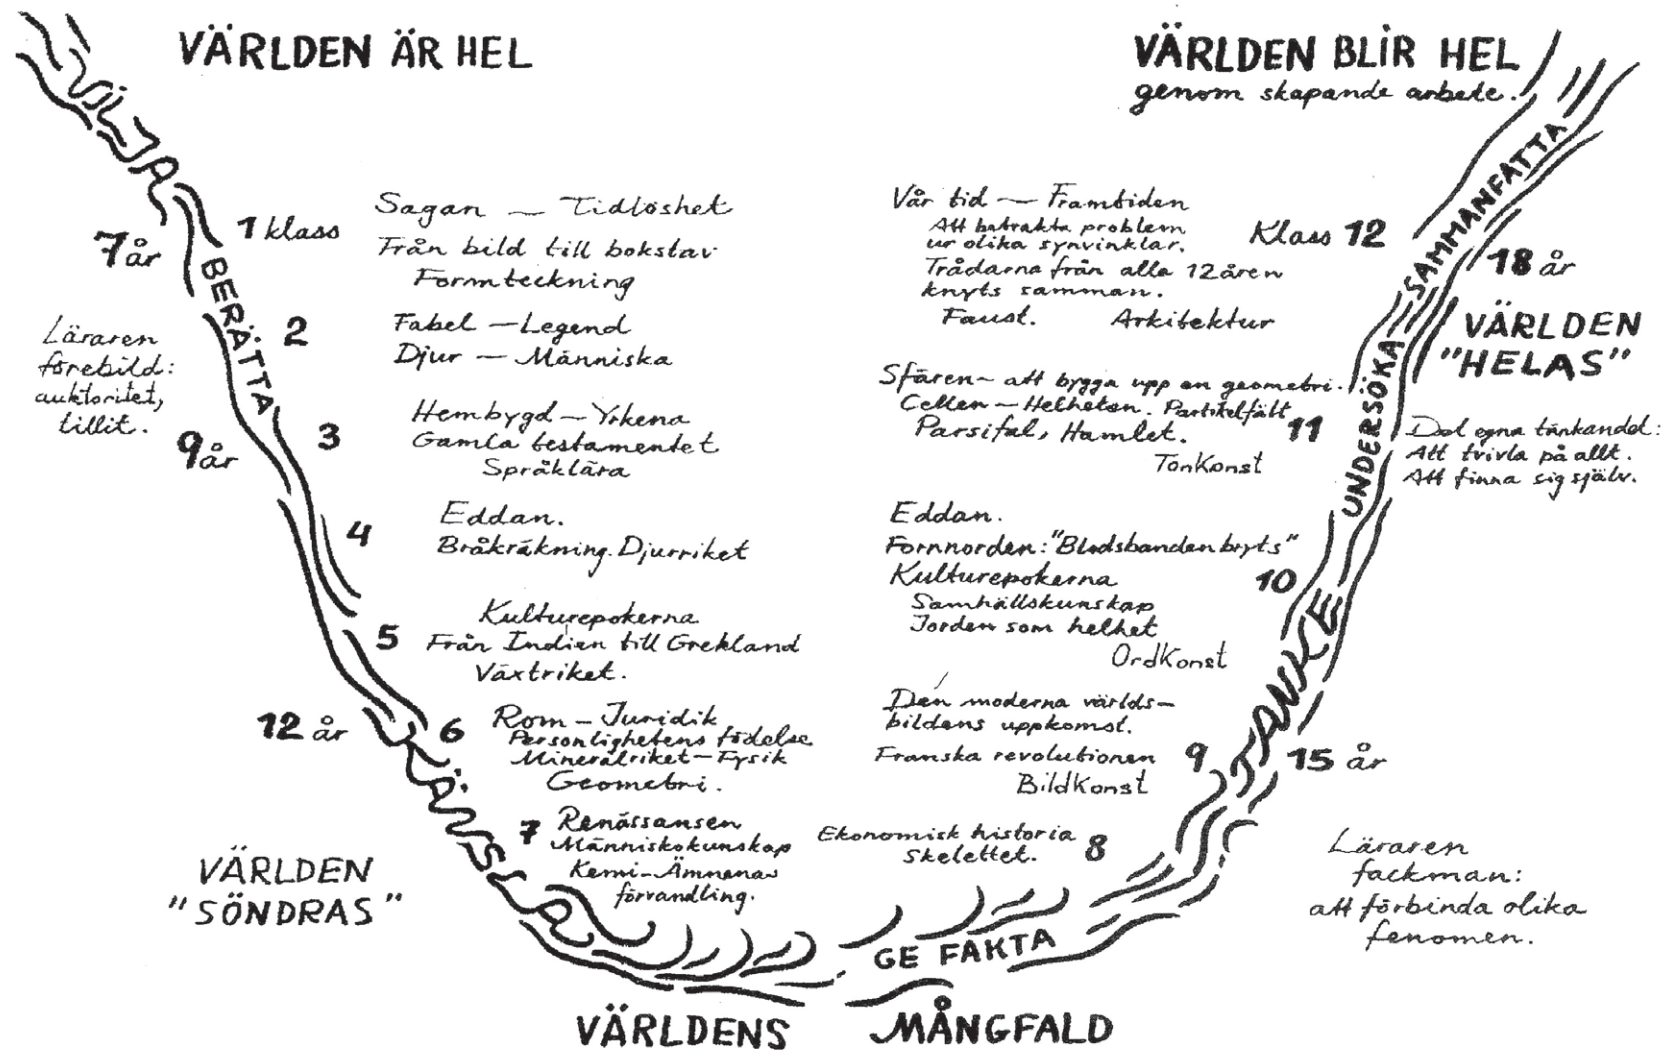 VÄRLDEN ÄR HEL
VILJA
7 år
1 klass
Sagan — Tidlöshet
Från bild till bokstav
Formteckning
BERÄTTA
Läraren
förebild:
auktoritet,
tillit.
2
Fabel — Legend
Djur — Människa
9 år
3
Hembygd — Yrkena
Gamla testamentet
Språklära
4
Eddan.
Bråkräkning. Djurriket
5
Kulturepokerna
Från Indien till Grekland
Växtriket.
12 år
6
Rom — Juridik
Personlighetens födelse
Mineralriket — Fysik
Geometri.
KÄNSLA
7
Renässansen
Människokunskap
Kemi-Ämnenas
förvandling.
VÄRLDEN
"SÖNDRAS"
VÄRLDENS MÅNGFALD
GE FAKTA
Ekonomisk historia
Skelettet.
8
Läraren
fackman:
att förbinda olika
fenomen.
Den moderna världs-
bildens uppkomst.
Franska revolutionen
BildKonst
9
15 år
TANKE
Eddan.
Fornnorden: "Blodsbanden bryts"
Kulturepokerna
Samhällskunskap
Jorden som helhet
OrdKonst
10
Sfären — att bygga upp en geometri.
Cellen — Helheten. Partikelfält
Parsifal, Hamlet.
TonKonst
11
UNDERSÖKA
Det egna tänkandet:
Att tvivla på allt.
Att finna sig själv.
VÄRLDEN
"HELAS"
18 år
Vår tid — Framtiden
Att betrakta problem
ur olika synvinklar.
Trådarna från alla 12 åren
knyts samman.
Faust. Arkitektur
Klass 12
SAMMANFATTA
VÄRLDEN BLIR HEL
genom skapande arbete.